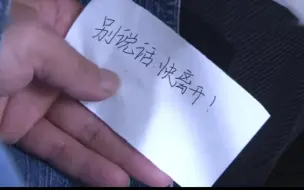 别说话.快离开!